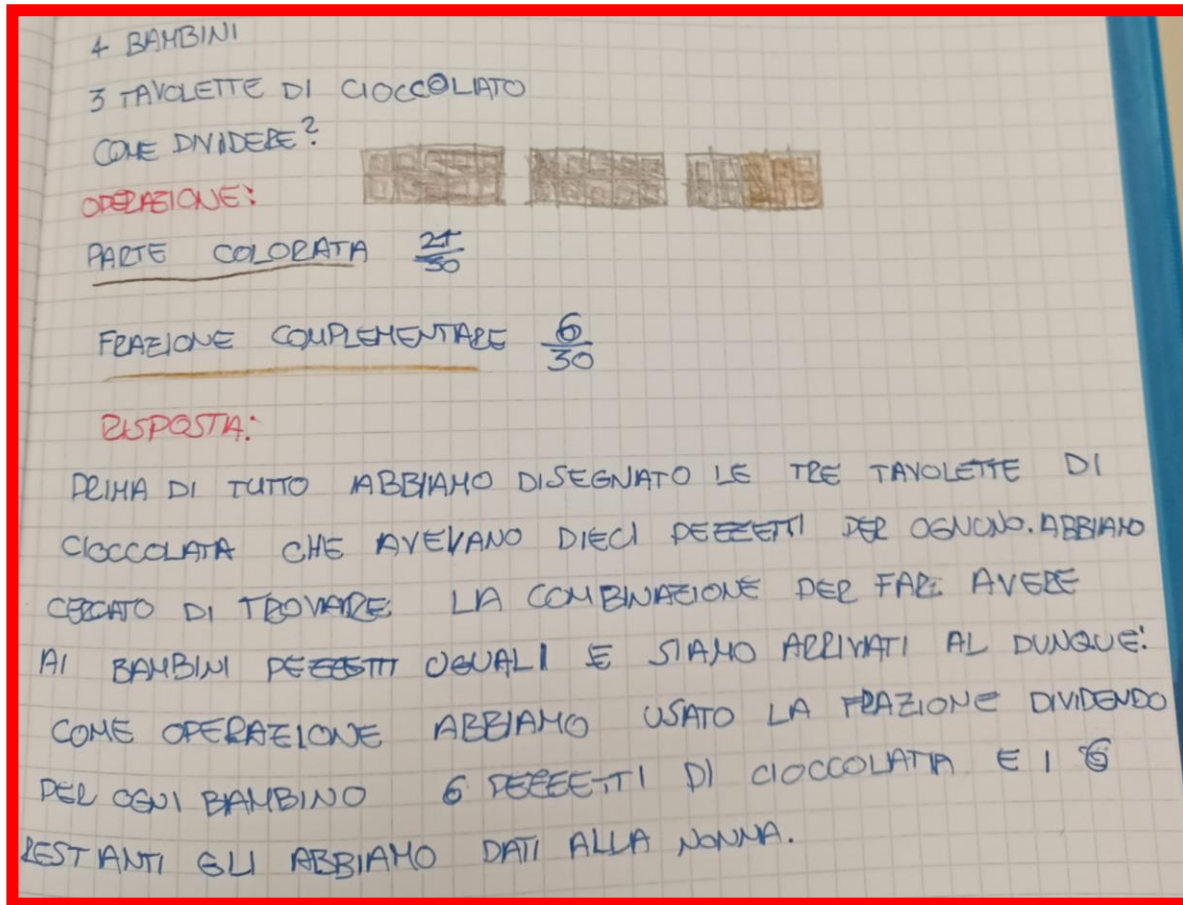 4 BAMBINI
3 TAVOLETTE DI CIOCCOLATO
COME DIVIDERE?
OPERAZIONE:
PARTE COLORATA 24/30
FRAZIONE COMPLEMENTARE 6/30
RISPOSTA:
PRIMA DI TUTTO ABBIAMO DISEGNATO LE TRE TAVOLETTE DI
CIOCCOLATA CHE AVEVANO DIECI PEZZETTI PER OGNUNO. ABBIAMO
CERCATO DI TROVARE LA COMBINAZIONE PER FARE AVERE
AI BAMBINI PEZZETTI UGUALI E SIAMO ARRIVATI AL DUNQUE:
COME OPERAZIONE ABBIAMO USATO LA FRAZIONE DIVIDENDO
PER OGNI BAMBINO 6 PEZZETTI DI CIOCCOLATA E I 6
RESTANTI GLI ABBIAMO DATI ALLA NONNA.